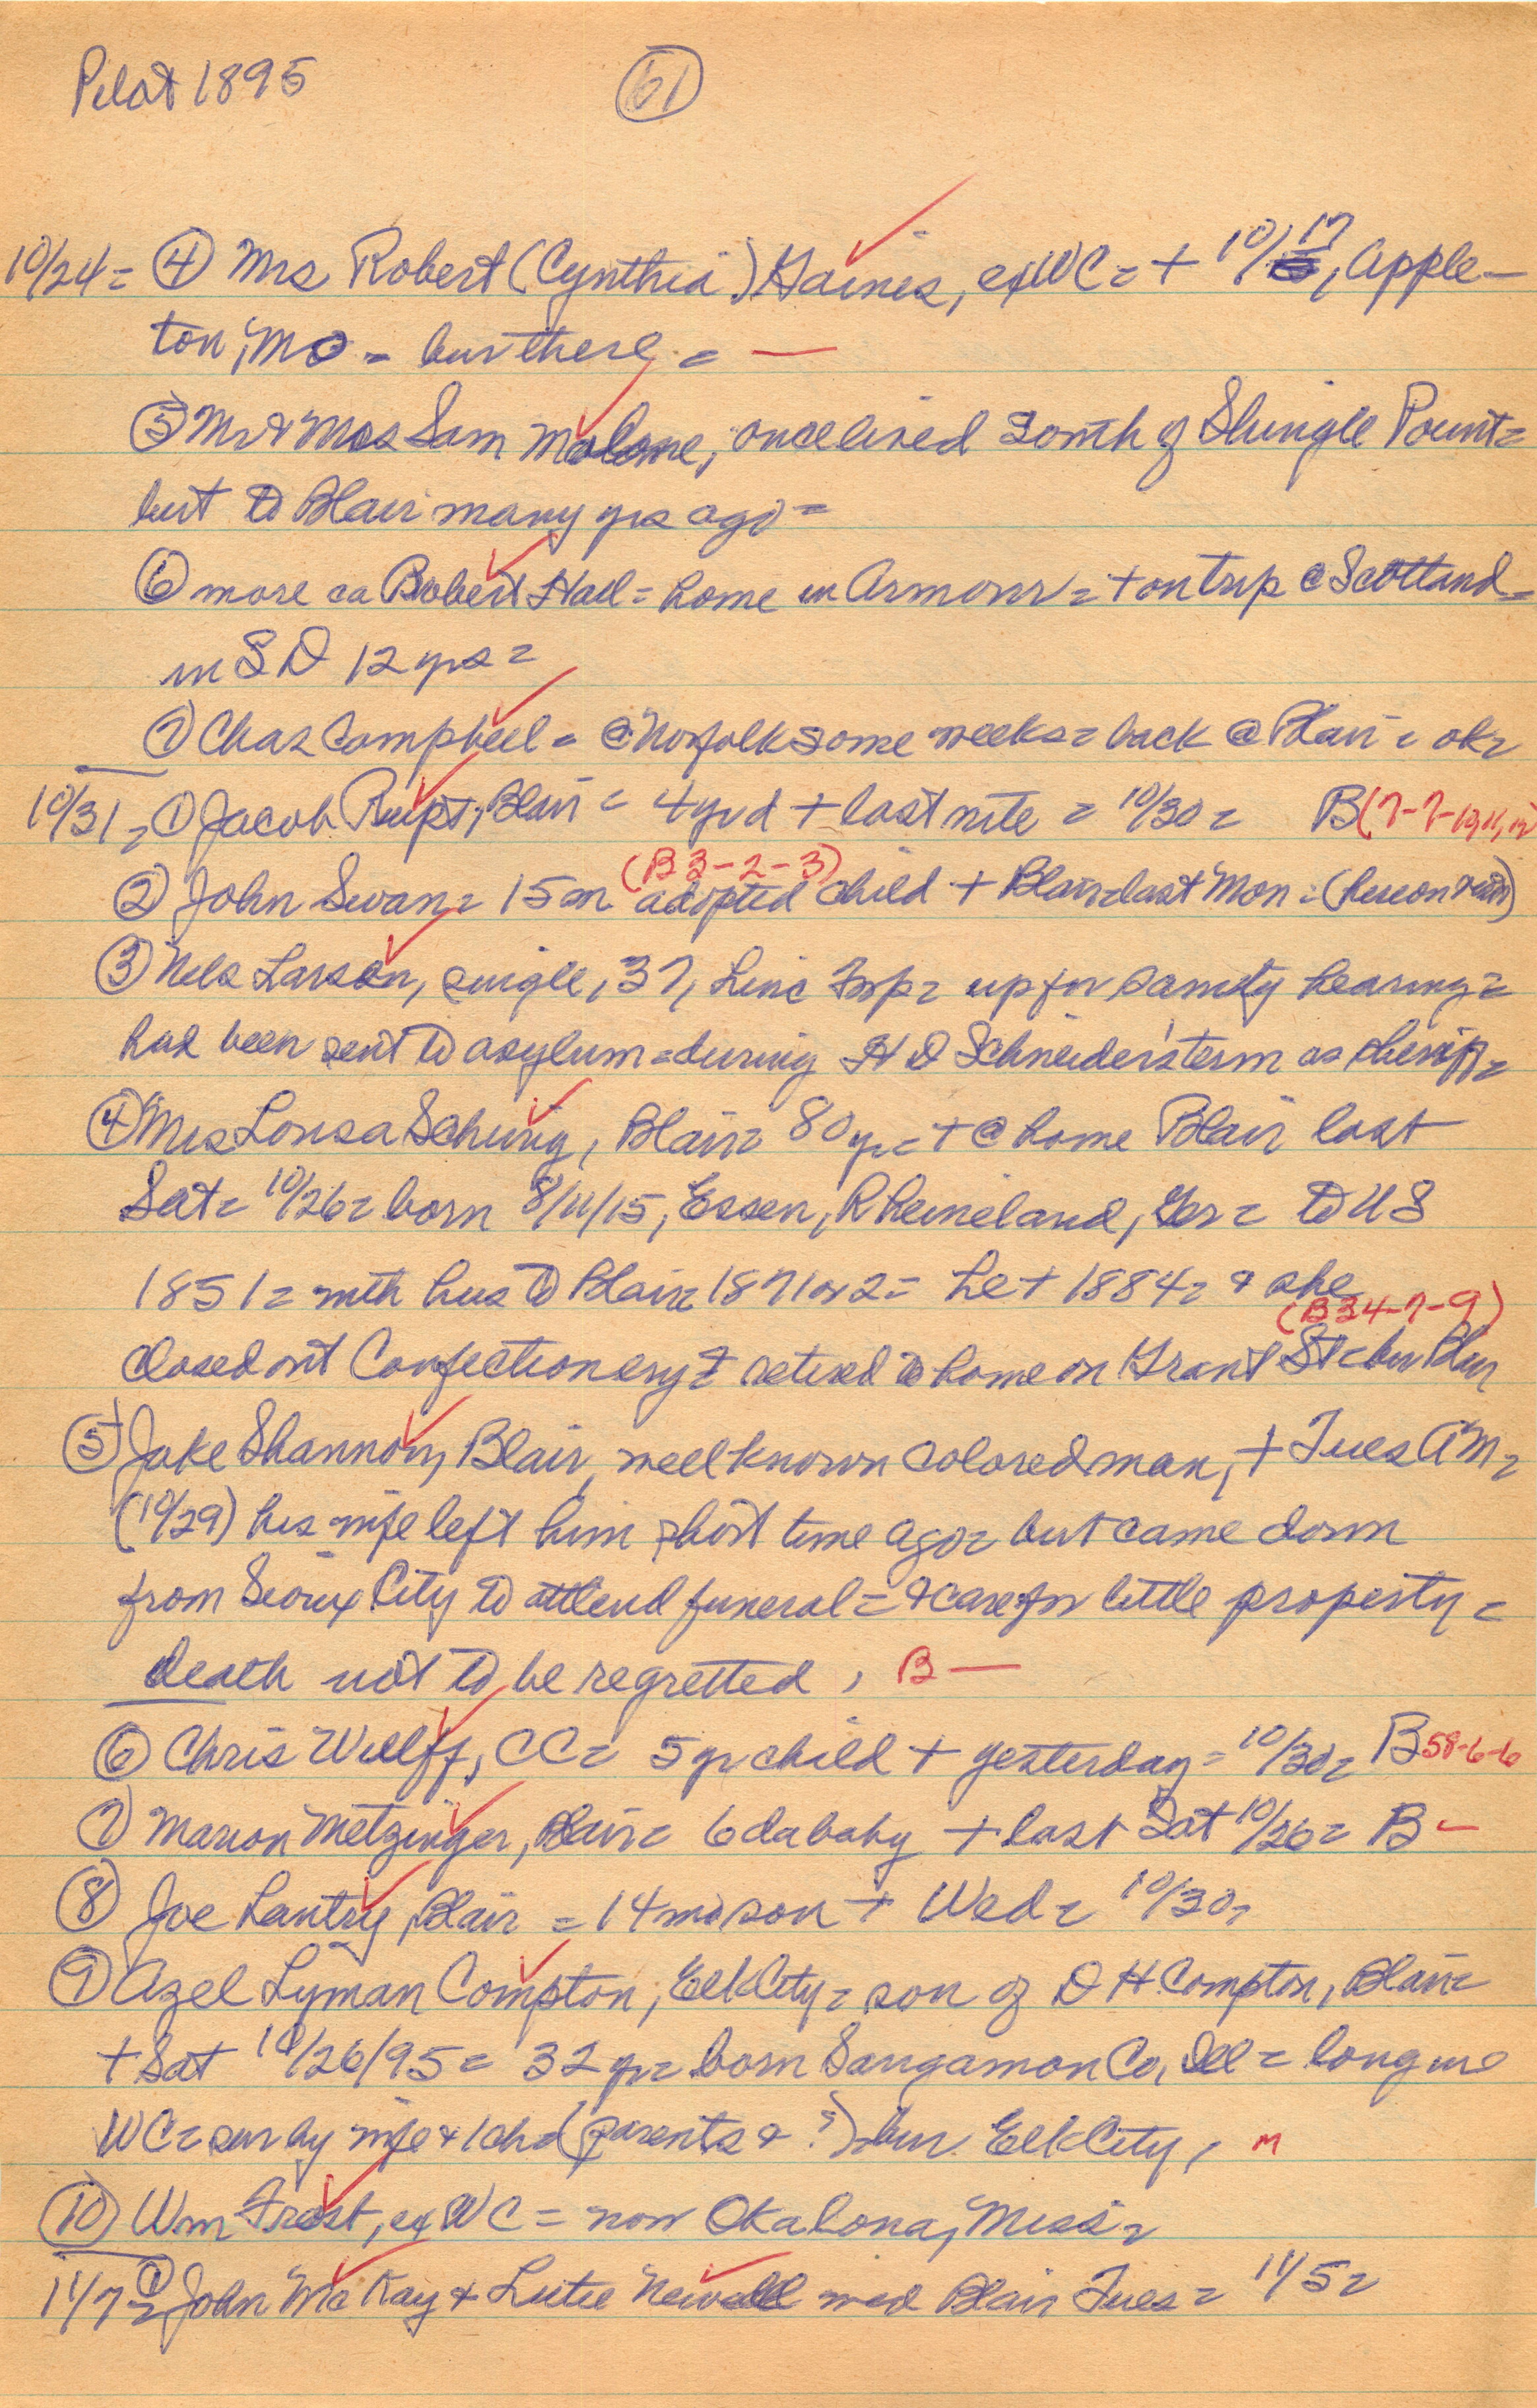 Pilot 1895 61
10/24 = ④ Mrs Robert (Cynthia) Haines, exWC = + 10/17, Apple-
ton, Mo = bur there = —
⑤ Mr & Mrs Sam Malone, once lived South of Shingle Point =
but to Blair many yrs ago =
⑥ more ca Robert Hall = home in Armour = + on trip @ Scotland =
in SD 12 yrs =
⑦ Chas Campbell = @ Norfolk some weeks = back @ Blair = ok =
10/31 = ① Jacob Rupt, Blair = 4 yr d + last nite = 10/30 = B (7-7-10,11,12
(B 3-2-3)
② John Swan = 15 m adopted child + Blair = last Mon = (
③ Nels Larson, single, 37, Linc Twp = up for sanity hearing =
had been sent to asylum = during H D Schneider's term as sheriff =
④ Mrs Louisa Schurig, Blair = 80 yr = + @ home Blair last
Sat = 10/26 = born 8/11/15, Essen, Rheineland, Ger = to US
1851 = with hus to Blair 1871 or 2 = he + 1884 = & she
(B 34-7-9)
closed out Confectionery & retired to home on Grant St = bur Blair
⑤ Jake Shannon, Blair, well known colored man, + Tues AM =
(10/29) his wife left him short time ago = but came down
from Sioux City to attend funeral = & care for little property =
death not to be regretted, B —
⑥ Chris Wulff, CC = 5 yr child + yesterday = 10/30 = B 58-6-6
⑦ Marion Metzinger, Blair = 6 da baby + last Sat 10/26 = B —
⑧ Joe Lantry, Blair = 14 mo son + Wed = 10/30 =
⑨ Azel Lyman Compton, Elk City = son of D H Compton, Blair =
+ Sat 10/26/95 = 32 yr = born Sangamon Co, Ill = long in
WC = sur by wife & 1 ch = (parents & ?) = bur. Elk City, M
⑩ Wm Frost, ex WC = now Okalona, Miss =
11/7 = ① John McKay & Lutie Newell md Blair Tues = 11/5 =